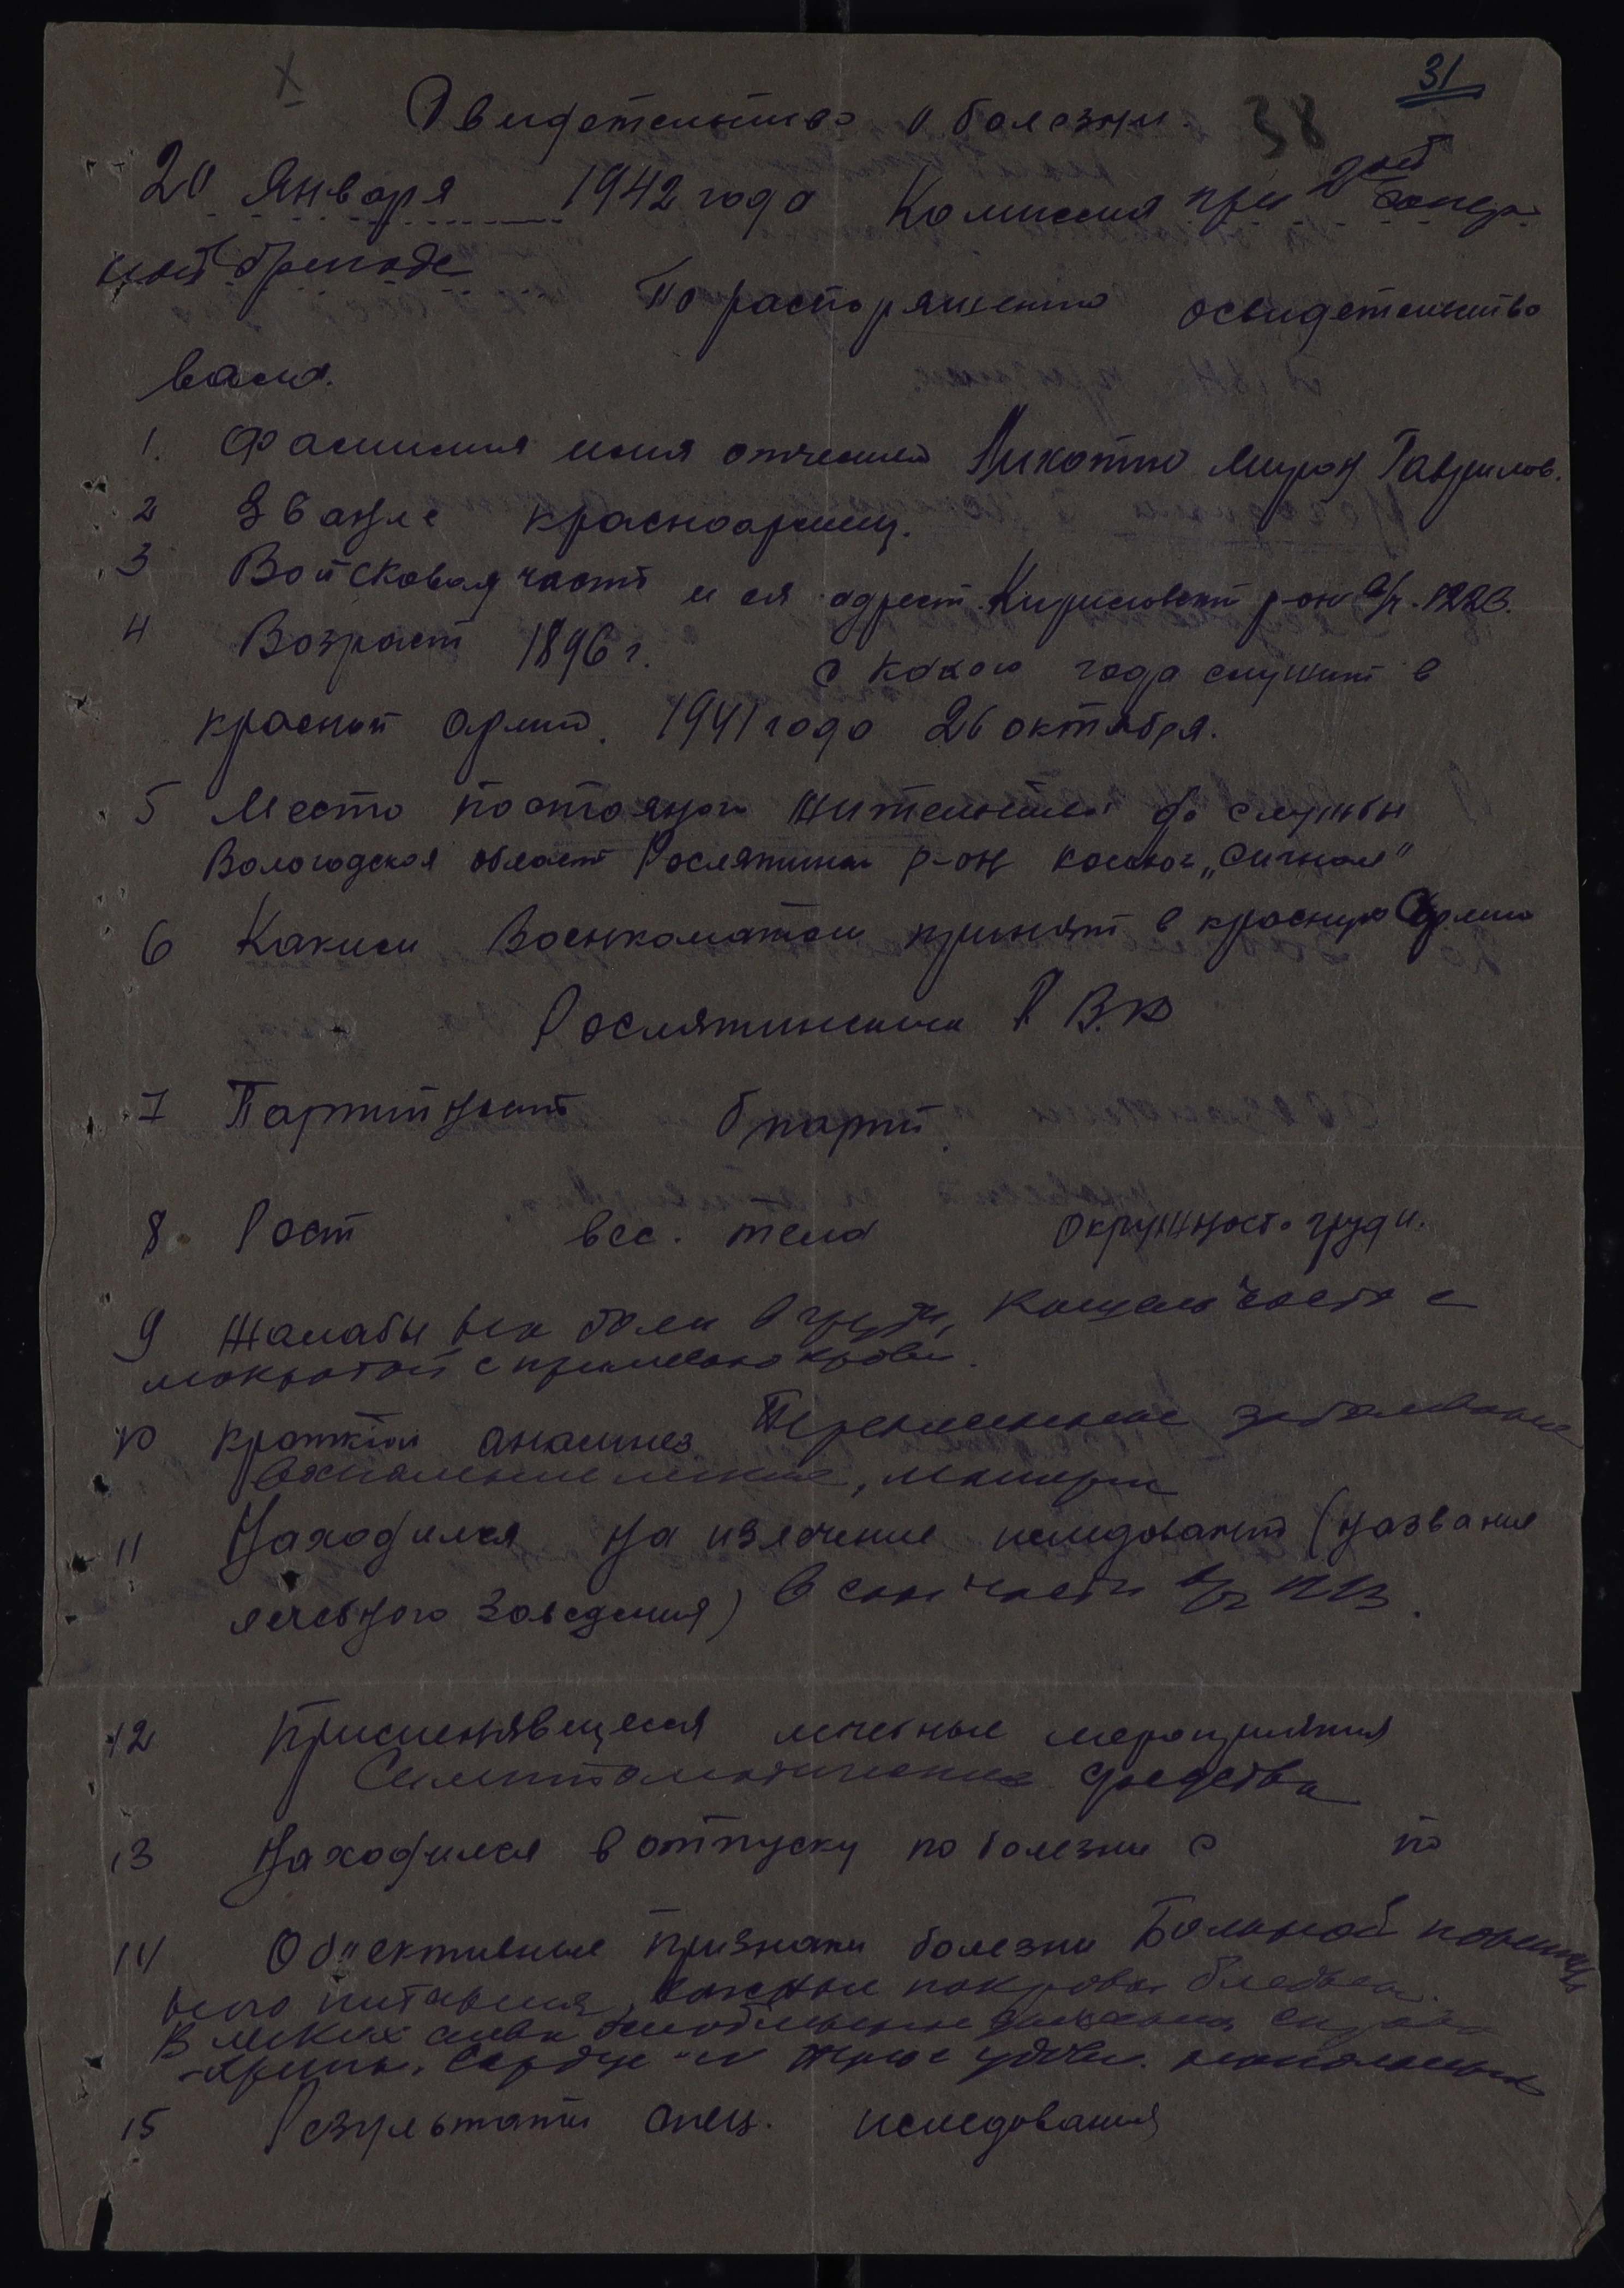 31
Свидетельство о болезни. 38
20 Января 1942 года Комиссия при 2ой
ной бригаде
По распоряжению освидетельство
вала.
1. Фамилия имя отчества Мирон Гаврилов.
2 Звание красноармеец.
3 Войсковая часть и ея адрест. Кириловский р-он п/я. 1223.
4 Возраст 1896 г. С какого года служит в
красной армии. 1941 года 26 октября.
5 Место постояного жительства до службы
Вологодская област Рослятинск р-он колхоз „Сигнал"
6 Каким Военкоматом принят в красную Армию
Рослятинским Р.В.К
7 Партийност б/парт.
8. Рост вес. тела Окружность груди.
9 Жалабы на боли в груди, кашель часто с
мокротой с примесью крови.
10 краткий анамнез Перенесенные заболевания
Воспаление легких,
11 Находился на излечение иследовании (названия
лечебного заведения) в сан части
12 Применявшиеся лечебные мероприятия
Симптоматические средства
13 Находился в отпуску по болезни с по
14 Объективные признаки болезни Больной
ного питания, кожные покровы бледные.
В легких слева дыхание
хрипы. Сердце
15 Результаты спец. иследования